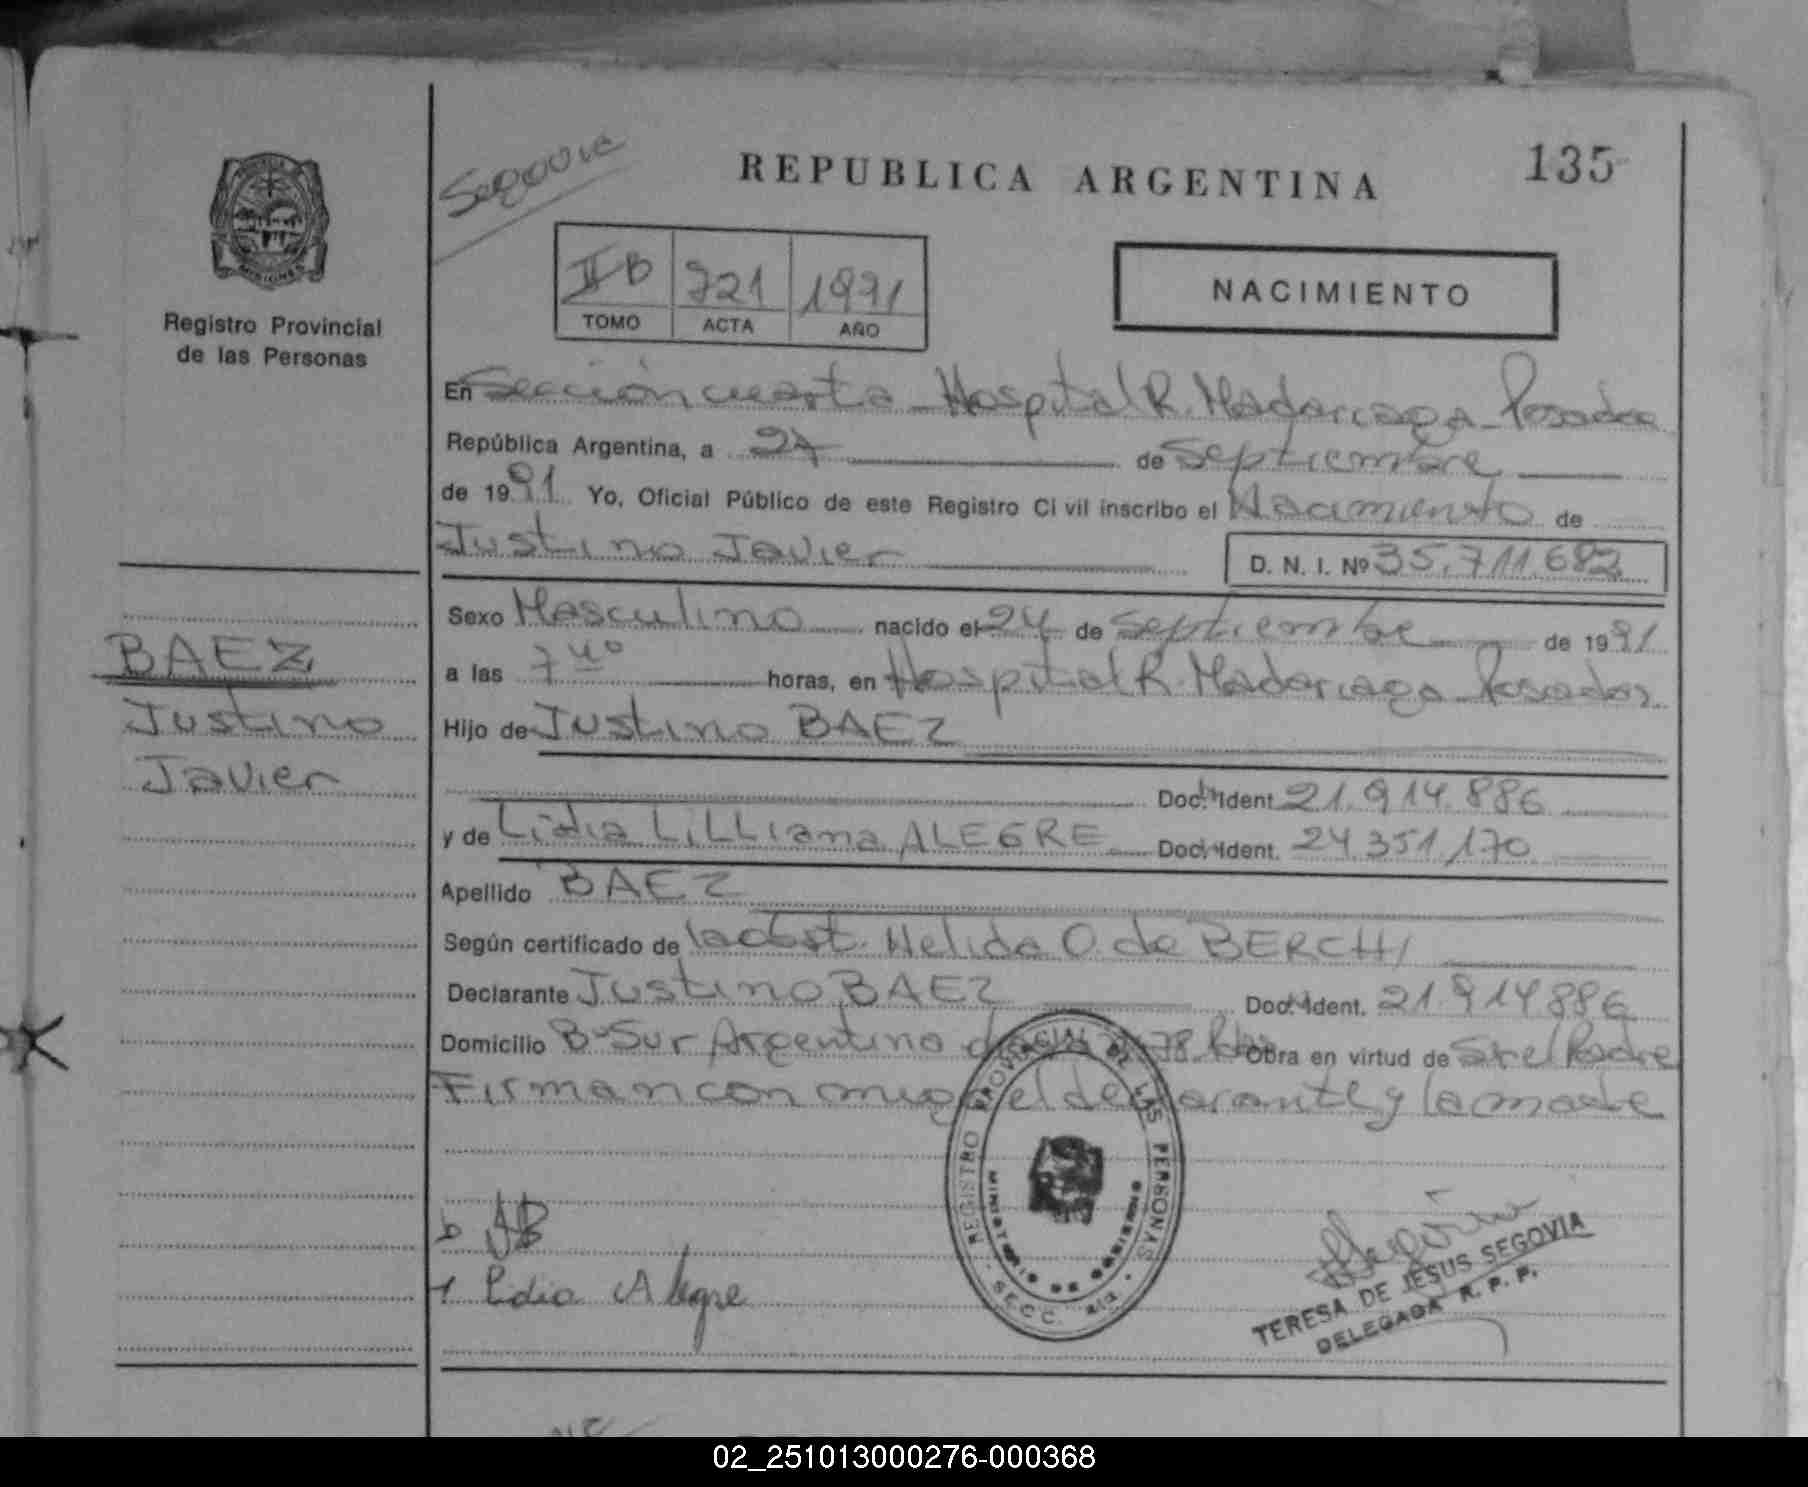 Segovia
REPUBLICA ARGENTINA
135
MISIONES
Registro Provincial
de las Personas
II B 721 1991
TOMO ACTA AÑO
NACIMIENTO
En Sección cuarta Hospital R. Madariaga Posadas
República Argentina, a 27 de Septiembre
de 1991 Yo, Oficial Público de este Registro Civil inscribo el Nacimiento de
Justino Javier D. N. I. Nº 35.711.682
Sexo Masculino nacido el 24 de Septiembre de 1991
a las 7 40 horas, en Hospital R. Madariaga Posadas
Hijo de Justino BAEZ
Doc. Ident 21.914.886
y de Lidia LiLLiana ALEGRE Doc. Ident. 24.351.170
Apellido BAEZ
Según certificado de la obst. Nelida O. de BERCHI
Declarante Justino BAEZ Doc. Ident. 21.914.886
Domicilio Bº Sur Argentino 78 Obra en virtud de Ser el Padre
Firman con migo el declarante y la madre
BAEZ
Justino
Javier
Lidia Alegre
REGISTRO PROVINCIAL DE LAS PERSONAS
MINISTERIO DE GOBIERNO
SECC. 4ta.
TERESA DE JESUS SEGOVIA
DELEGADA R. P. P.
02_251013000276-000368